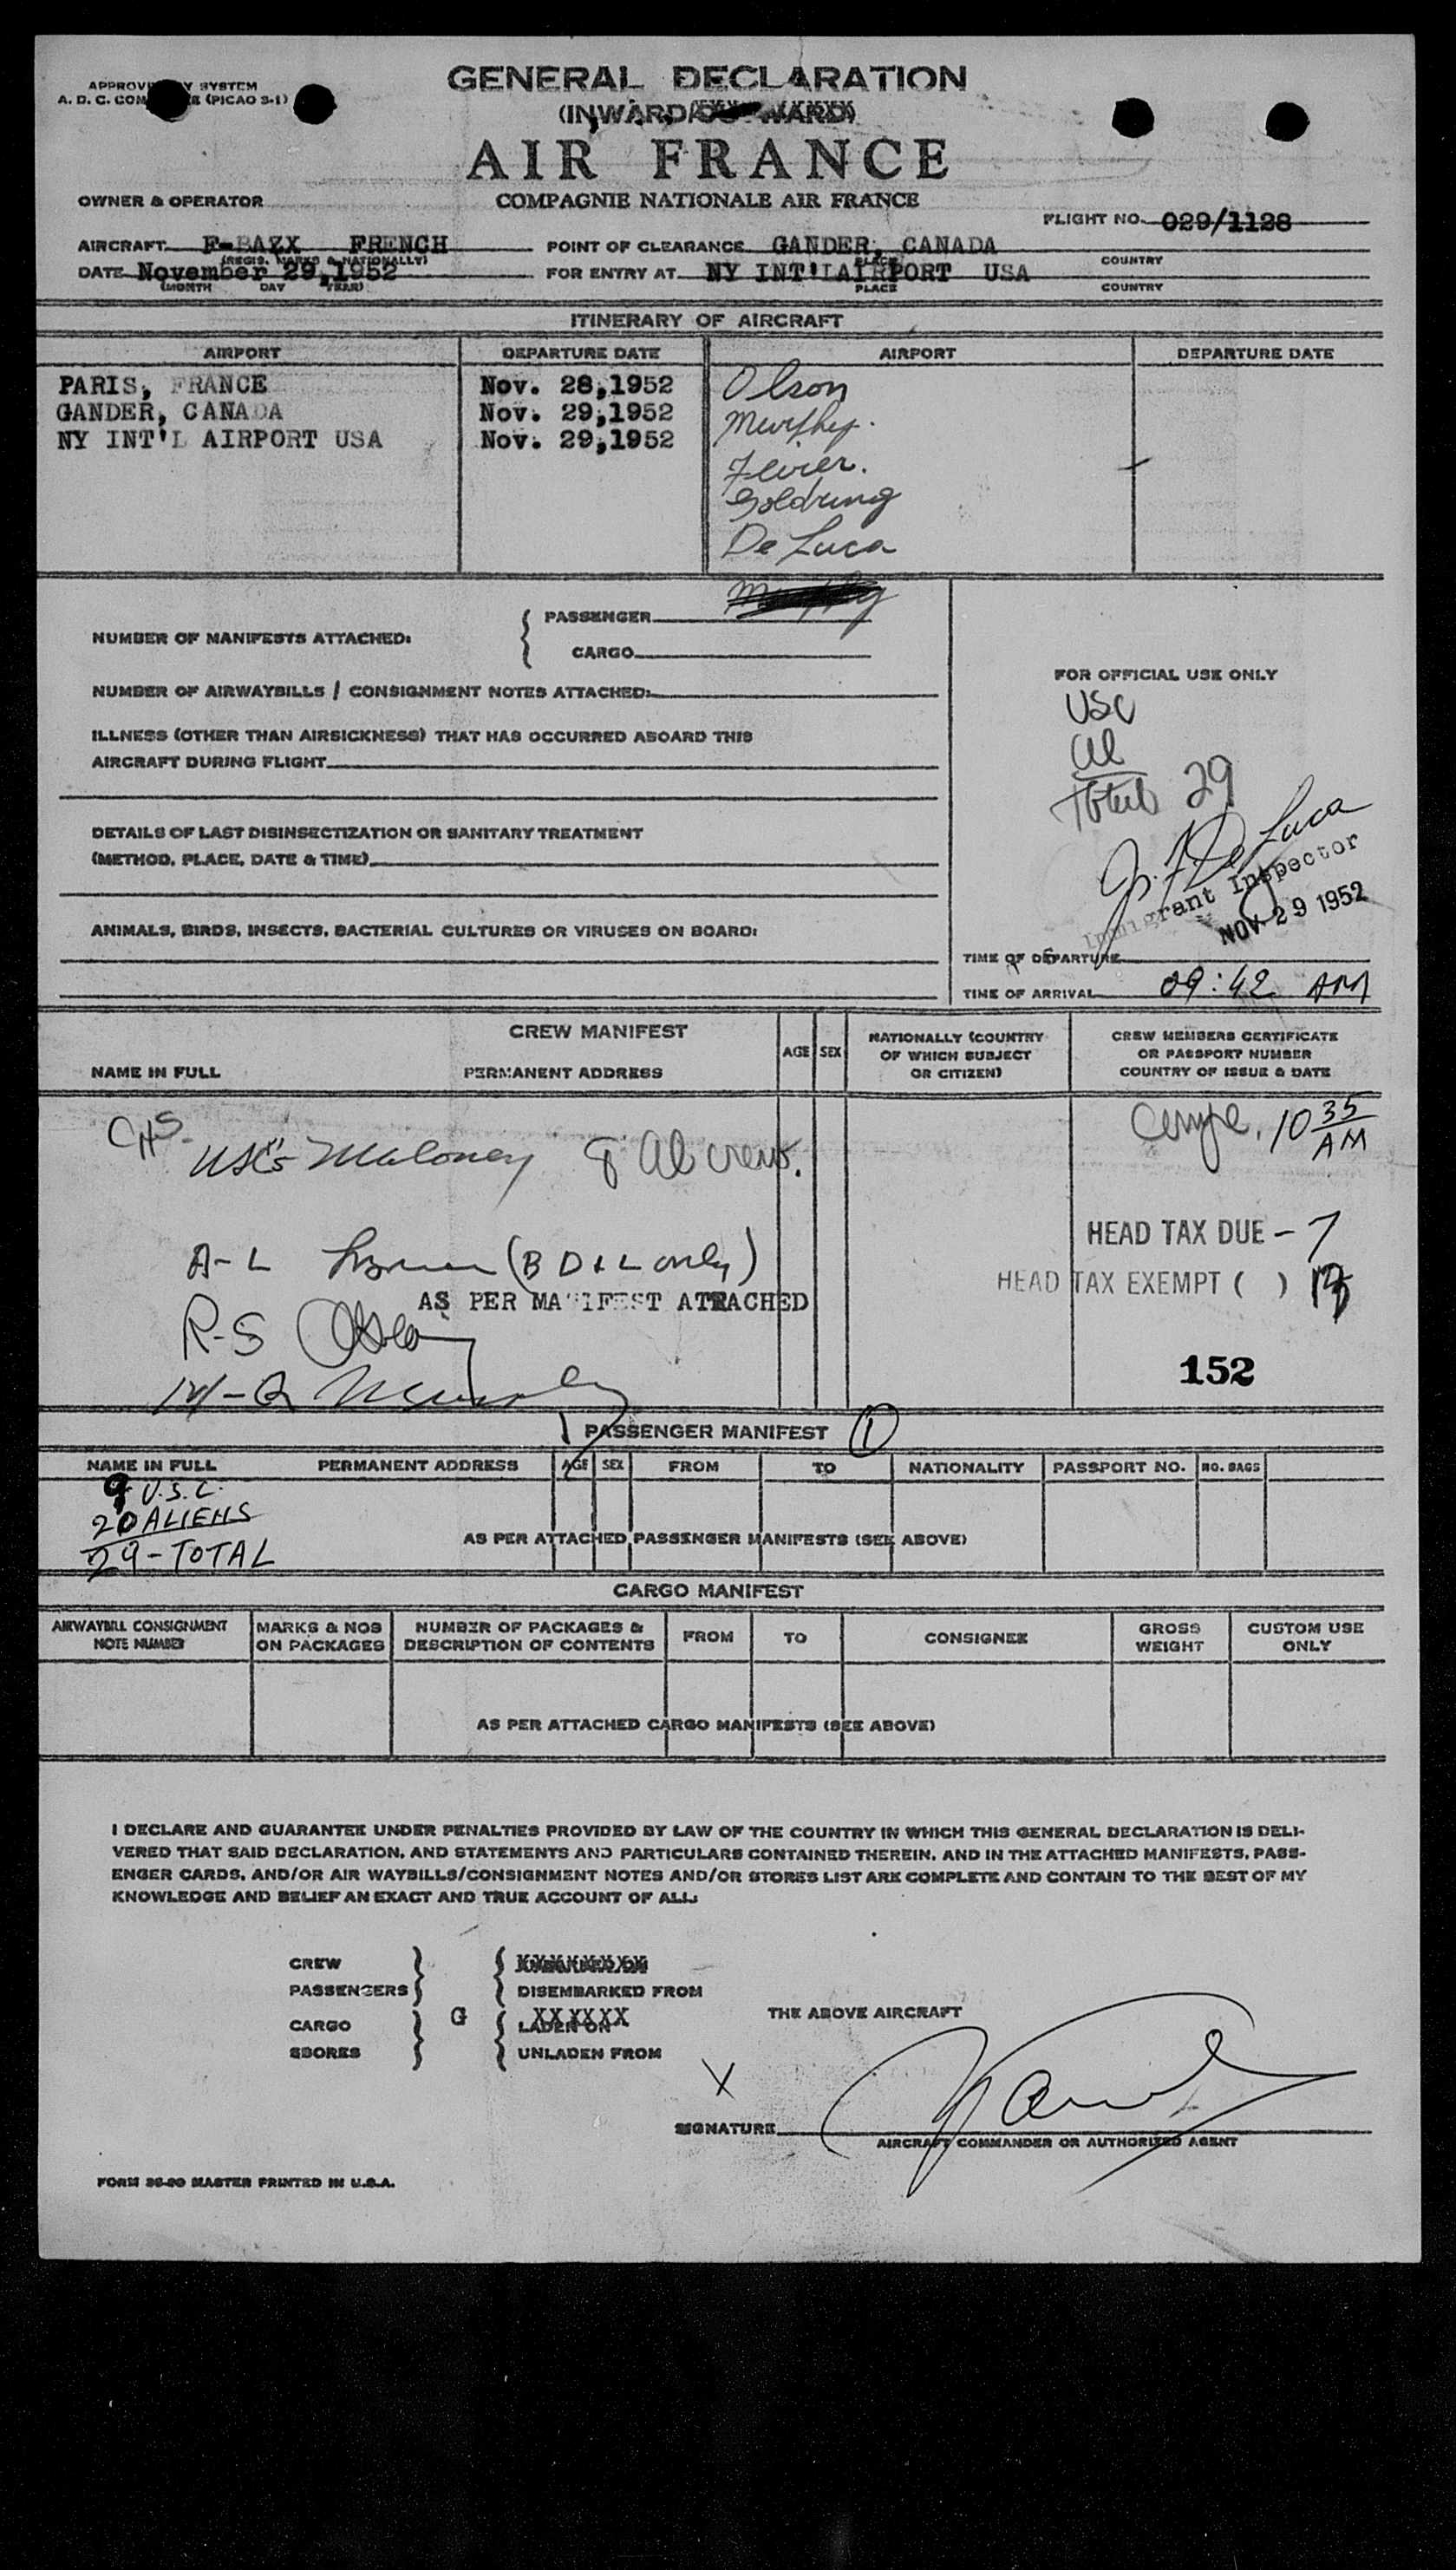 GENERAL DECLARATION
A. D. C. (PICAO S-1)
(INWARD/
AIR FRANCE
OWNER & OPERATOR
COMPAGNIE NATIONALE AIR FRANCE
FLIGHT NO. 029/1128
AIRCRAFT F-BAZX FRENCH
POINT OF CLEARANCE GANDER, CANADA
(REGIS. MARKS & NATIONALLY)
PLACE
COUNTRY
DATE November 29,1952
FOR ENTRY AT NY INT'L AIRPORT USA
(MONTH DAY YEAR)
PLACE
COUNTRY
ITINERARY OF AIRCRAFT
AIRPORT DEPARTURE DATE AIRPORT DEPARTURE DATE
PARIS, FRANCE Nov. 28,1952 Olson
GANDER, CANADA Nov. 29,1952 Murphy.
NY INT'L AIRPORT USA Nov. 29,1952
Goldring
De Luca
NUMBER OF MANIFESTS ATTACHED:
PASSENGER
CARGO
NUMBER OF AIRWAYBILLS / CONSIGNMENT NOTES ATTACHED:
ILLNESS (OTHER THAN AIRSICKNESS) THAT HAS OCCURRED ABOARD THIS
AIRCRAFT DURING FLIGHT
DETAILS OF LAST DISINSECTIZATION OR SANITARY TREATMENT
(METHOD, PLACE, DATE & TIME)
ANIMALS, BIRDS, INSECTS, BACTERIAL CULTURES OR VIRUSES ON BOARD:
FOR OFFICIAL USE ONLY
USC
al
Total 29
De Luca
Immigrant Inspector
NOV 29 1952
TIME OF DEPARTURE
TIME OF ARRIVAL 09:42 AM
CREW MANIFEST
NAME IN FULL PERMANENT ADDRESS
AGE
SEX
NATIONALLY (COUNTRY
OF WHICH SUBJECT
OR CITIZEN)
CREW MEMBERS CERTIFICATE
OR PASSPORT NUMBER
COUNTRY OF ISSUE & DATE
10 35
AM
CHS
Maloney
A-L (B D & L only)
AS PER MANIFEST ATTACHED
R-S Olson
HEAD TAX DUE - 7
HEAD TAX EXEMPT ( )
152
PASSENGER MANIFEST 1
NAME IN FULL PERMANENT ADDRESS AGE SEX FROM TO NATIONALITY PASSPORT NO. NO. BAGS
9 U.S.C.
20 ALIENS
29-TOTAL
AS PER ATTACHED PASSENGER MANIFESTS (SEE ABOVE)
CARGO MANIFEST
AIRWAYBILL CONSIGNMENT
NOTE NUMBER
MARKS & NOS
ON PACKAGES
NUMBER OF PACKAGES &
DESCRIPTION OF CONTENTS
FROM
TO
CONSIGNEE
GROSS
WEIGHT
CUSTOM USE
ONLY
AS PER ATTACHED CARGO MANIFESTS (SEE ABOVE)
I DECLARE AND GUARANTEE UNDER PENALTIES PROVIDED BY LAW OF THE COUNTRY IN WHICH THIS GENERAL DECLARATION IS DELI-
VERED THAT SAID DECLARATION, AND STATEMENTS AND PARTICULARS CONTAINED THEREIN, AND IN THE ATTACHED MANIFESTS, PASS-
ENGER CARDS, AND/OR AIR WAYBILLS/CONSIGNMENT NOTES AND/OR STORES LIST ARE COMPLETE AND CONTAIN TO THE BEST OF MY
KNOWLEDGE AND BELIEF AN EXACT AND TRUE ACCOUNT OF ALL:
CREW
PASSENGERS
DISEMBARKED FROM
CARGO
G
LADEN ON
SBORES
UNLADEN FROM
THE ABOVE AIRCRAFT
X
SIGNATURE
AIRCRAFT COMMANDER OR AUTHORIZED AGENT
FORM 36-90 MASTER PRINTED IN U.S.A.